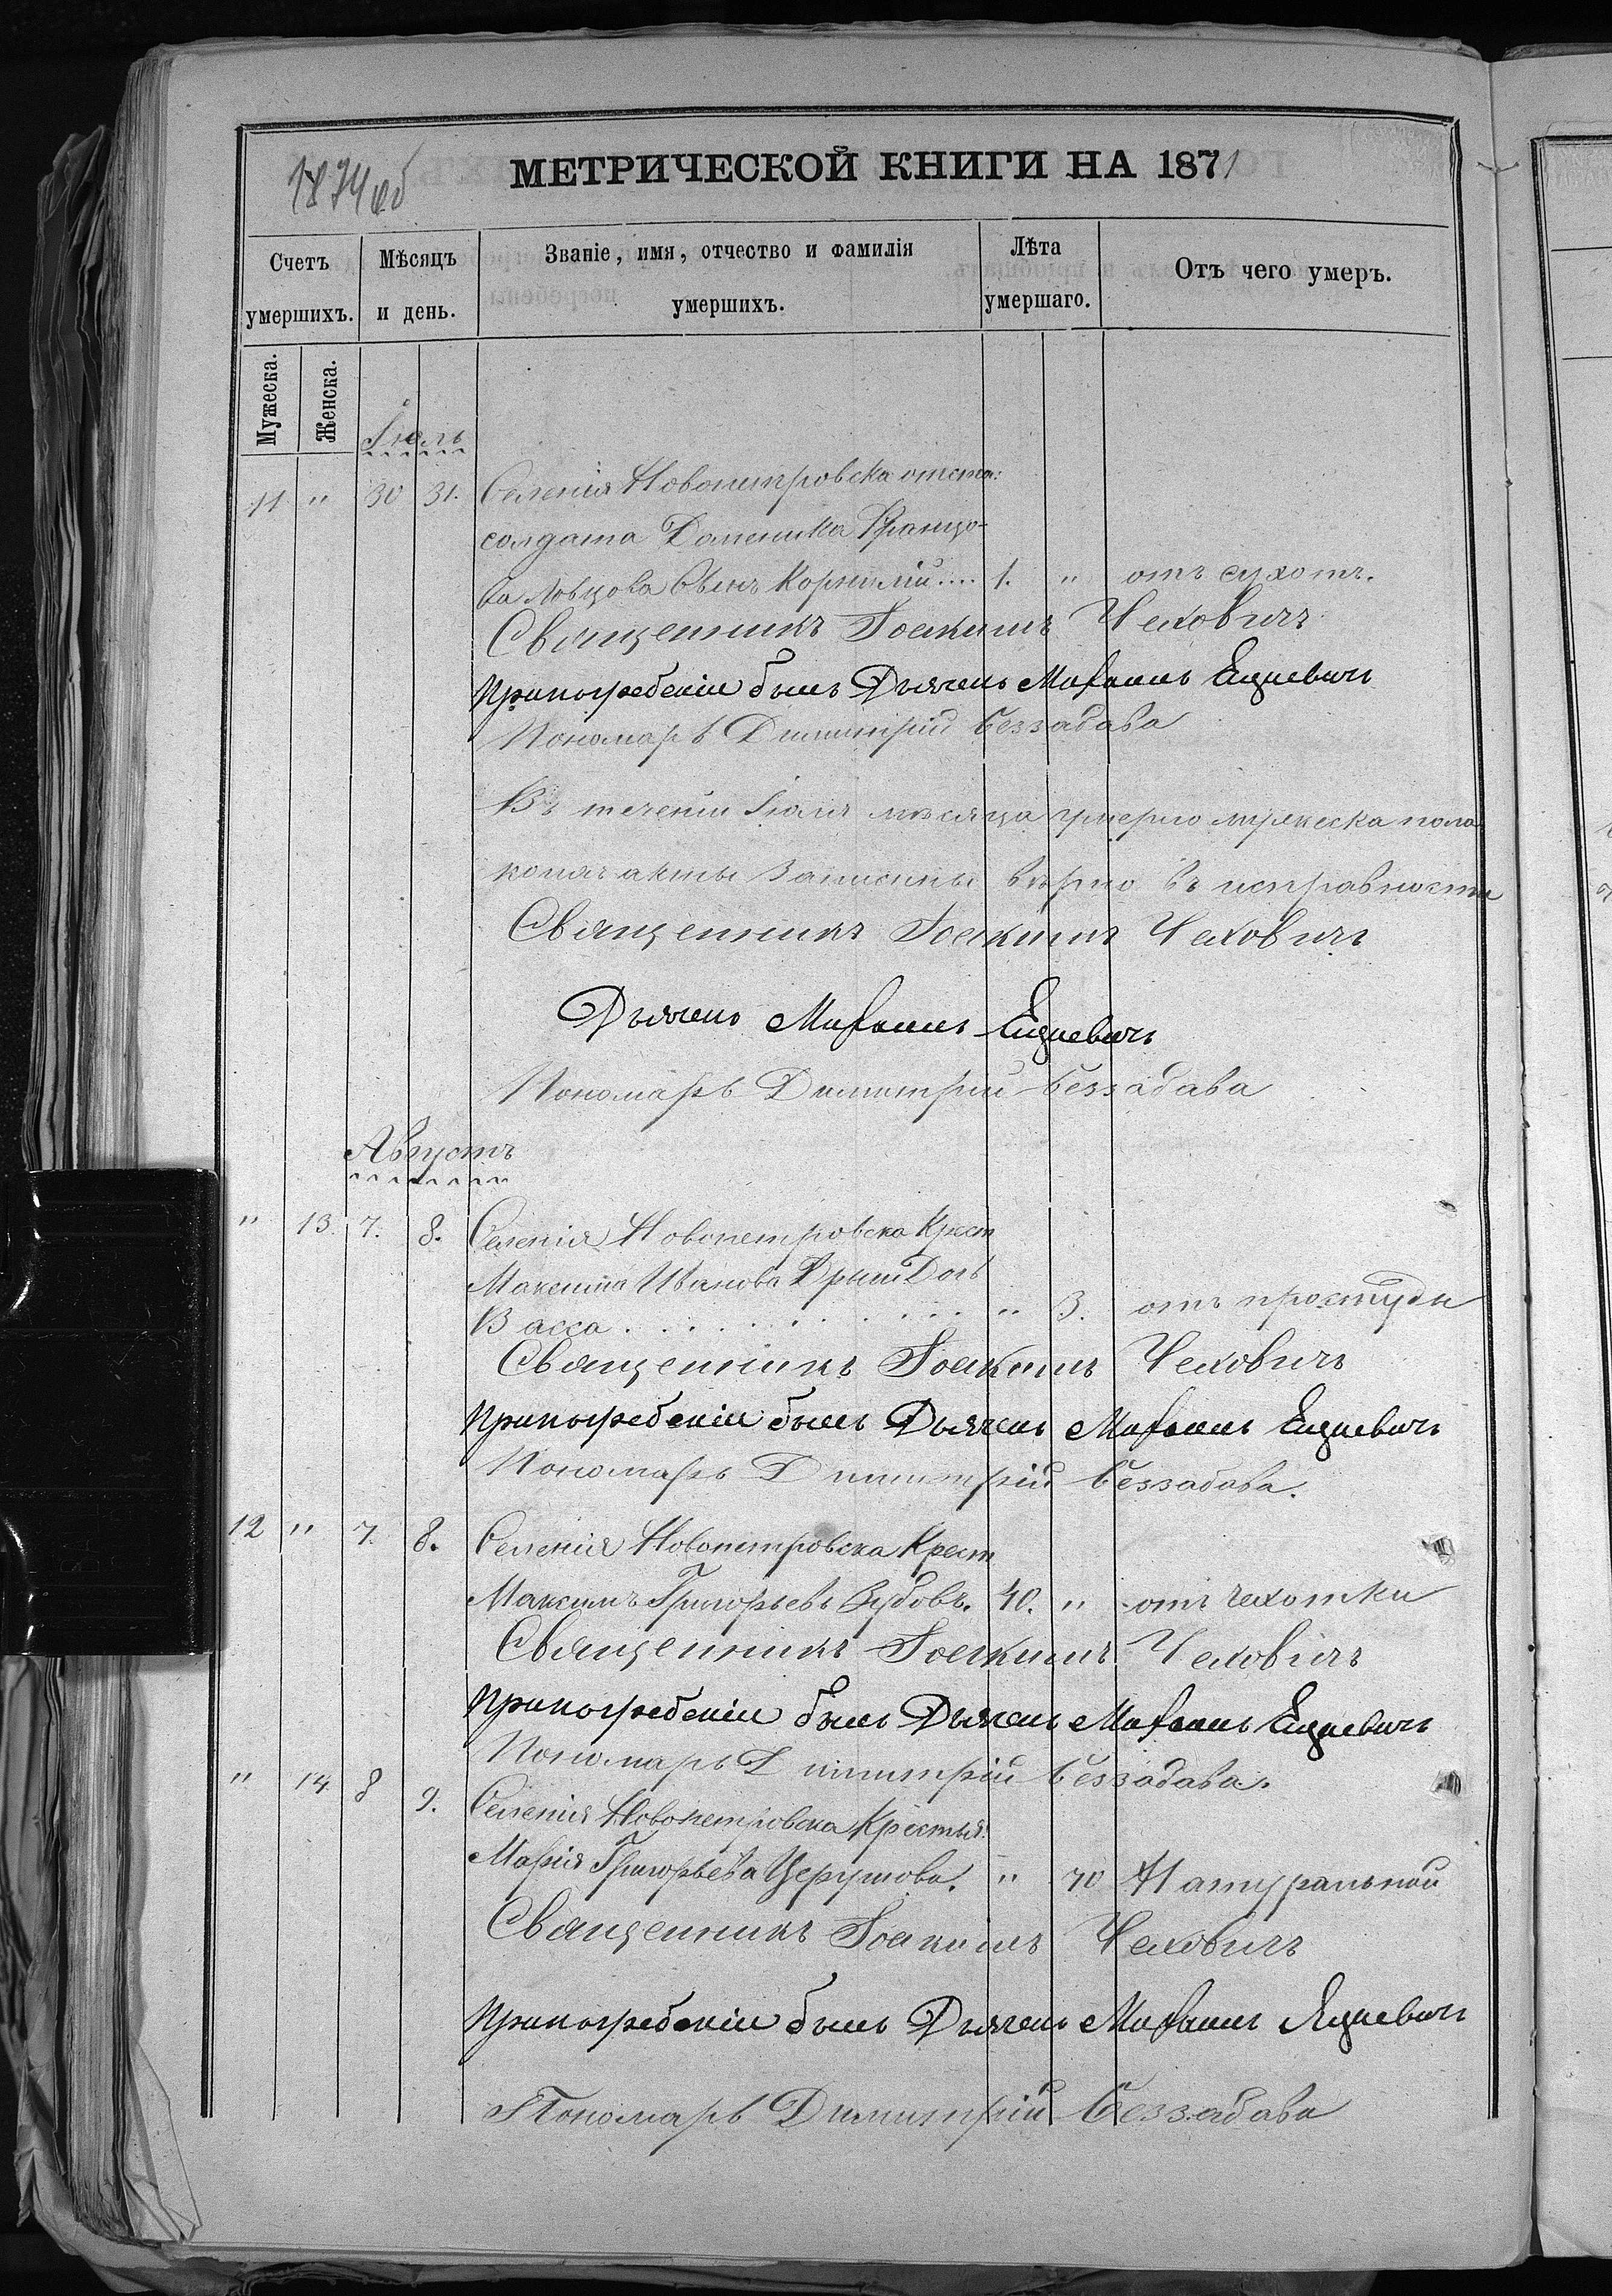 1874 об
МЕТРИЧЕСКОЙ КНИГИ НА 1871
Счетъ умершихъ.
Мѣсяцъ и день.
Званіе, имя, отчество и фамилія умершихъ.
Лѣта умершаго.
Отъ чего умеръ.
Мужеска.
Женска.
Іюль
11 " 30 31. Селенія Новопетровска отста:
солдата Доменика
Сынъ Корнилій .... 1. " отъ сухотъ.
Священникъ Іоакимъ Чехович
При погребеніи былъ Дьячекъ
Пономарь Димитрій Беззабава
Въ теченіи Іюля мѣсяца умерло мужеска пола
акты записаны вѣрно въ исправности
Священникъ Іоакимъ Чеховичъ
Дьячекъ
Пономарь Димитрій Беззабава
Августъ
" 13. 7. 8. Селенія Новопетровска Крест
Максима Иванова Дочь
Васса . . . . . . . . . . " 3. отъ простуды
Священникъ Іоакимъ Чеховичъ
При погребеніи былъ Дьячекъ
Пономарь Димитрій Беззабава.
12 " 7. 8. Селенія Новопетровска Крест
Максимъ Григорьевъ Зубовъ. 40. " отъ чахотки
Священникъ Іоакимъ Чеховичъ
При погребеніи былъ Дьячекъ
Пономарь Димитрій Беззабава.
" 14 8 9. Селенія Новопетровска Крестья:
Марія Григорьева " 70 Натуральной
Священникъ Іоакимъ Чеховичъ
При погребеніи былъ Дьячекъ
Пономарь Димитрій Беззабава